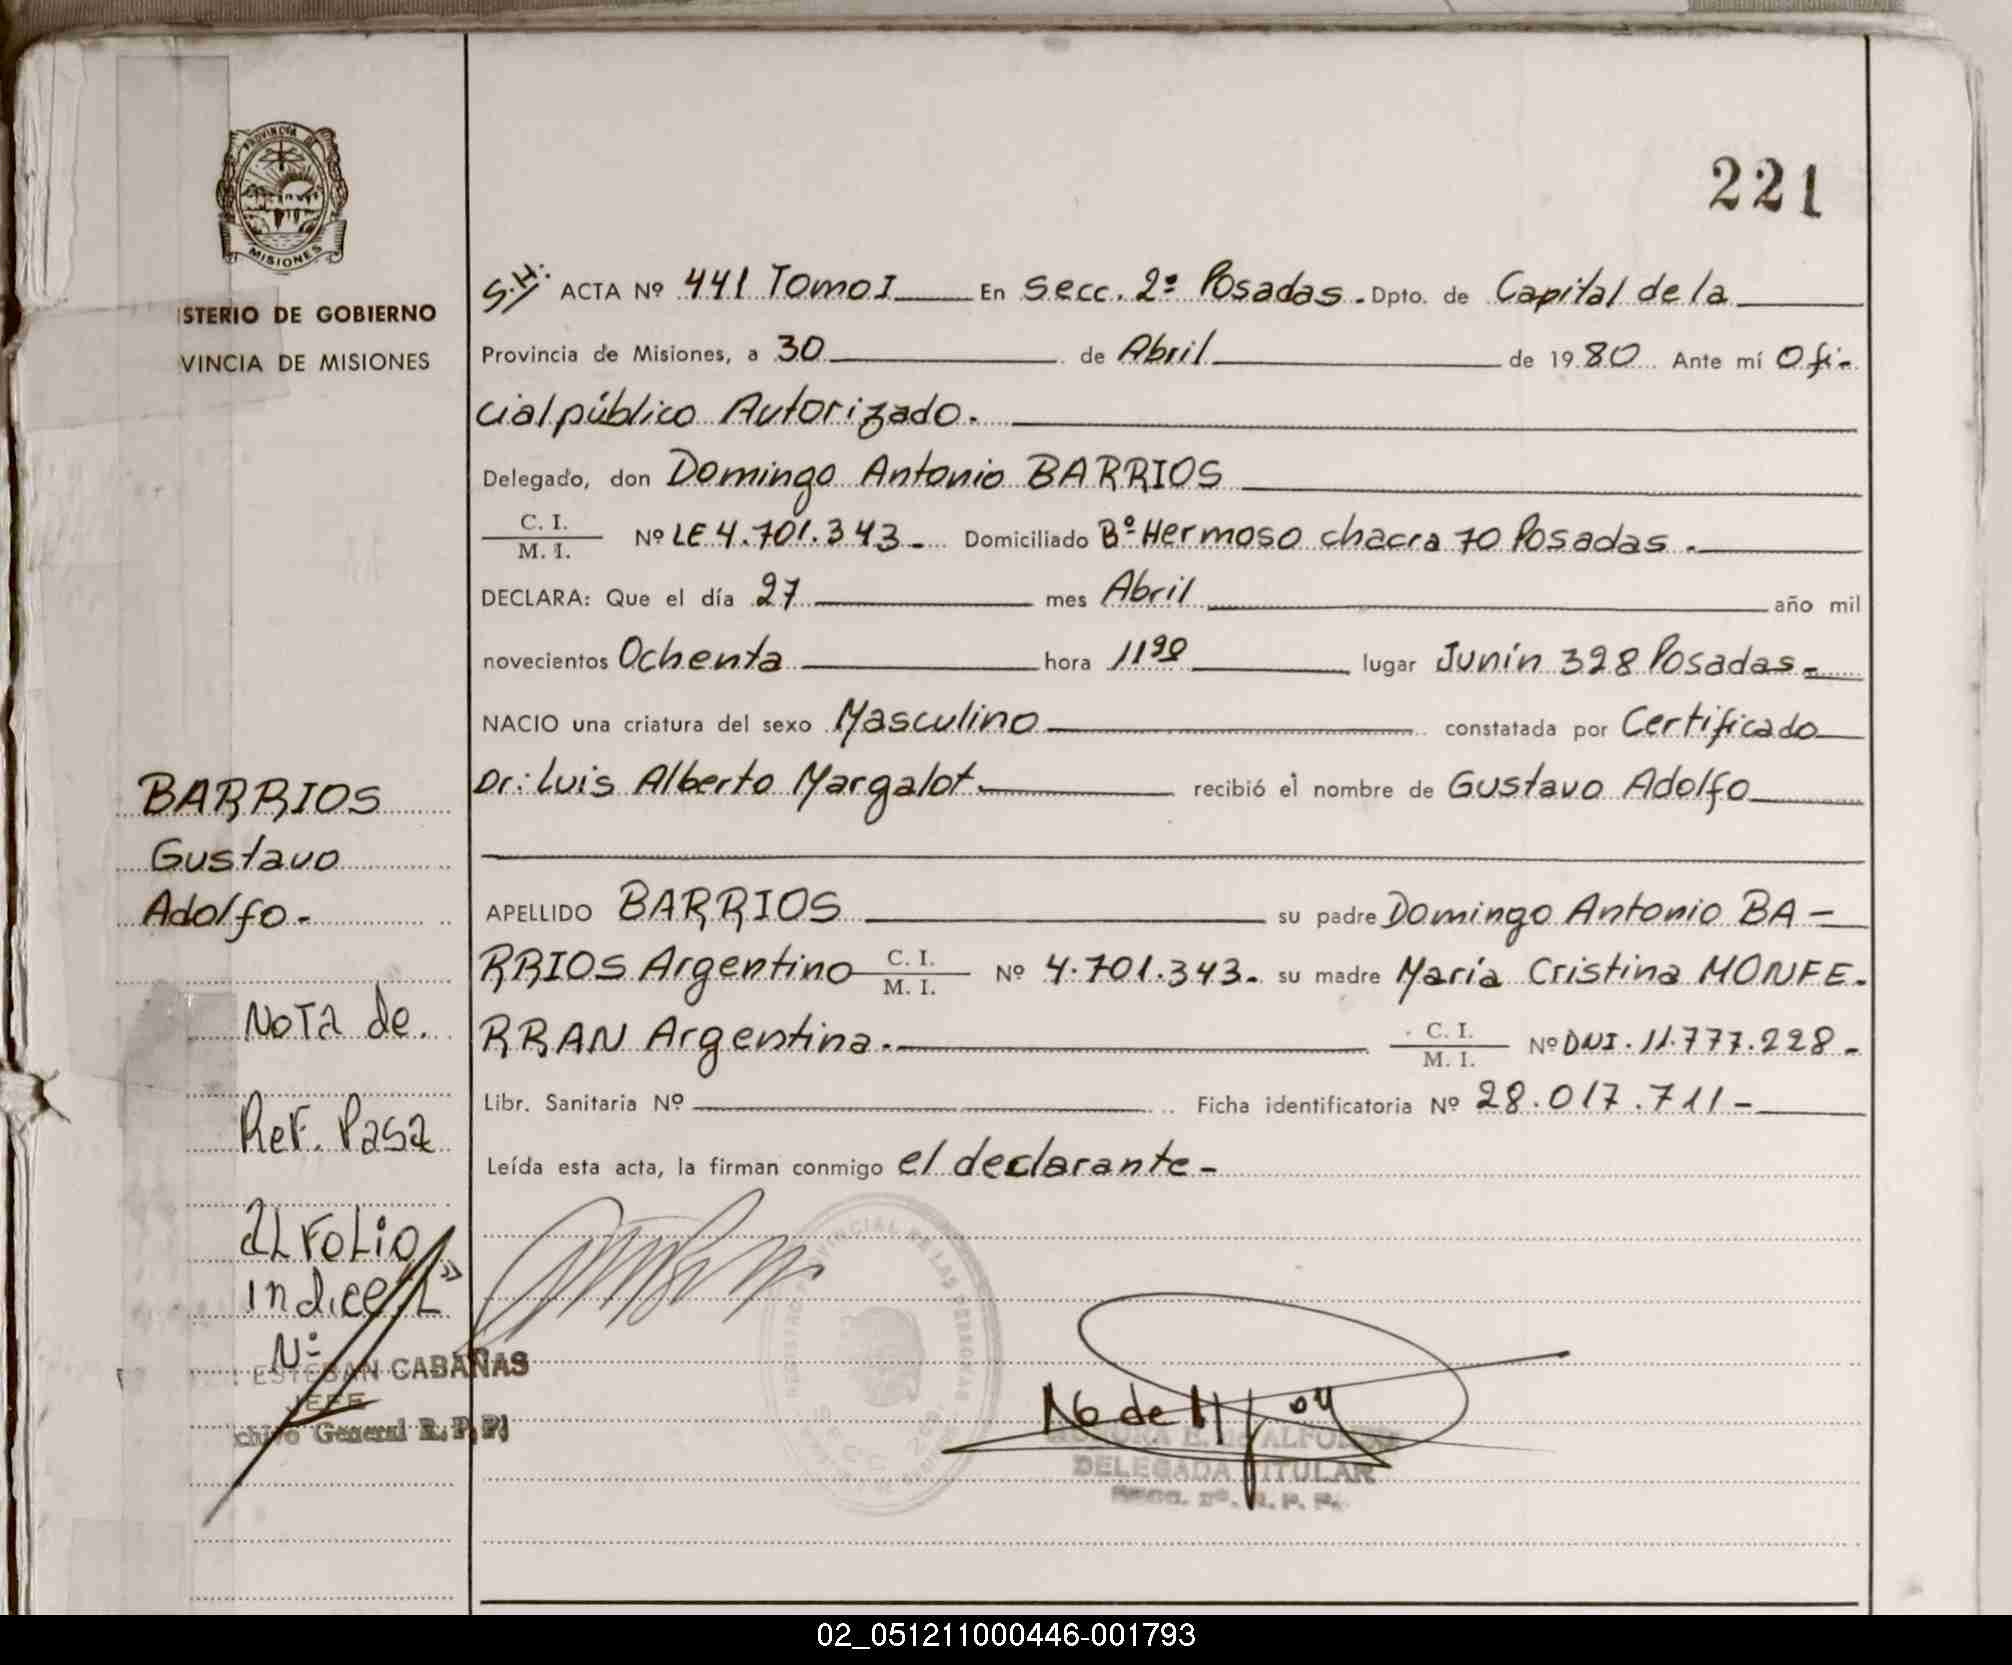 PROVINCIA DE
MISIONES
221
STERIO DE GOBIERNO
VINCIA DE MISIONES
S.H: ACTA Nº 441 Tomo I En Secc. 2º Posadas. Dpto. de Capital de la
Provincia de Misiones, a 30 de Abril de 1980 Ante mí Ofi-
cial público Autorizado.
Delegado, don Domingo Antonio BARRIOS
C. I.
M. I.
Nº LE 4.701.343- Domiciliado Bº Hermoso chacra 70 Posadas.
DECLARA: Que el día 27 mes Abril año mil
novecientos Ochenta hora lugar Junín 328 Posadas-
NACIO una criatura del sexo Masculino constatada por Certificado
Dr: Luis Alberto Margalot. recibió el nombre de Gustavo Adolfo
APELLIDO BARRIOS su padre Domingo Antonio BA-
RRIOS Argentino C. I. M. I. Nº 4.701.343- su madre María Cristina MONFE-
RRAN Argentina. C. I. M. I. Nº DNI. 11.777.228-
Libr. Sanitaria Nº Ficha identificatoria Nº 28.017.711-
Leída esta acta, la firman conmigo el declarante-
BARRIOS
Gustavo
Adolfo-
NoTa de.
ReF. Pasa
aL FoLio
indice
Nº
ESTEBAN CABAÑAS
JEFE
chivo General R. P. P.
REGISTRO PROVINCIAL DE LAS PERSONAS
SECC. 2da.
DELEGADA TITULAR
02_051211000446-001793